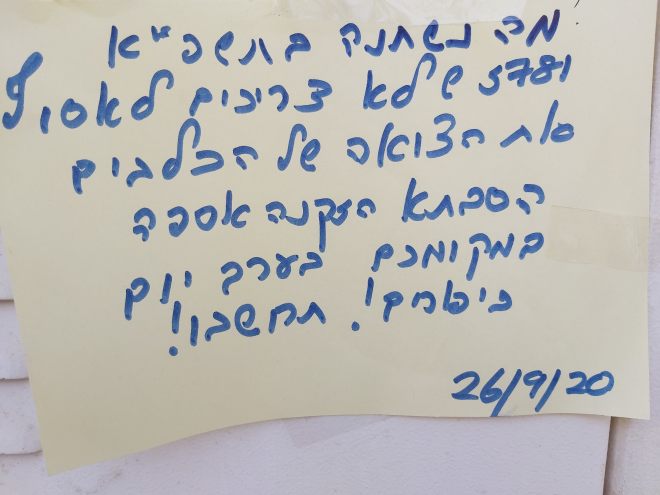 מה נשתנה בתשפ"א
5781 שלא צריכים לאסוף
את הצואה של הכלבים
הסבתא הזקנה אספה
במקומכם בערב יום
כיפורים! תחשבו!
26/9/20